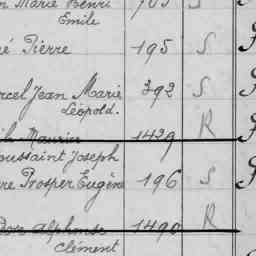 Marie Henri 703 S
Emile
Pierre 195 S
Jean Marie 392 S
Léopold.
Maurice 1429 R
Toussaint Joseph
Prosper Eugène 196 S
Alphonse 1490 R
Clément